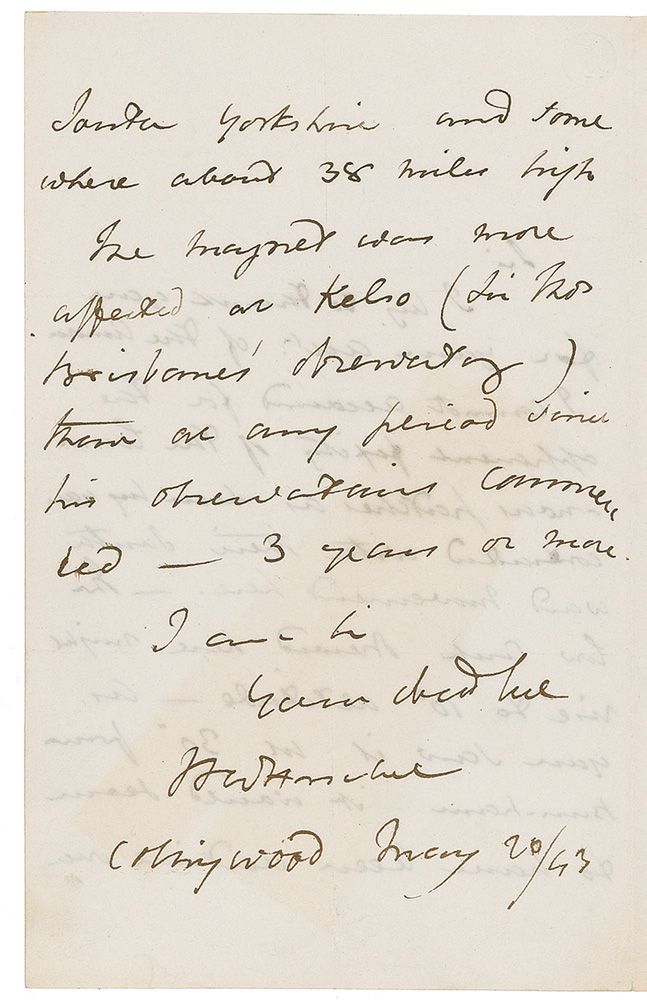 Yorkshire and some
where about 38 miles high
The magnet was more
affected at Kelso (Sir Thos
Brisbane's observatory)
than at any period since
his observations commen
ced — 3 years or more.
I am Sir
Your obed
JFW Herschel
Collingwood May 20/43